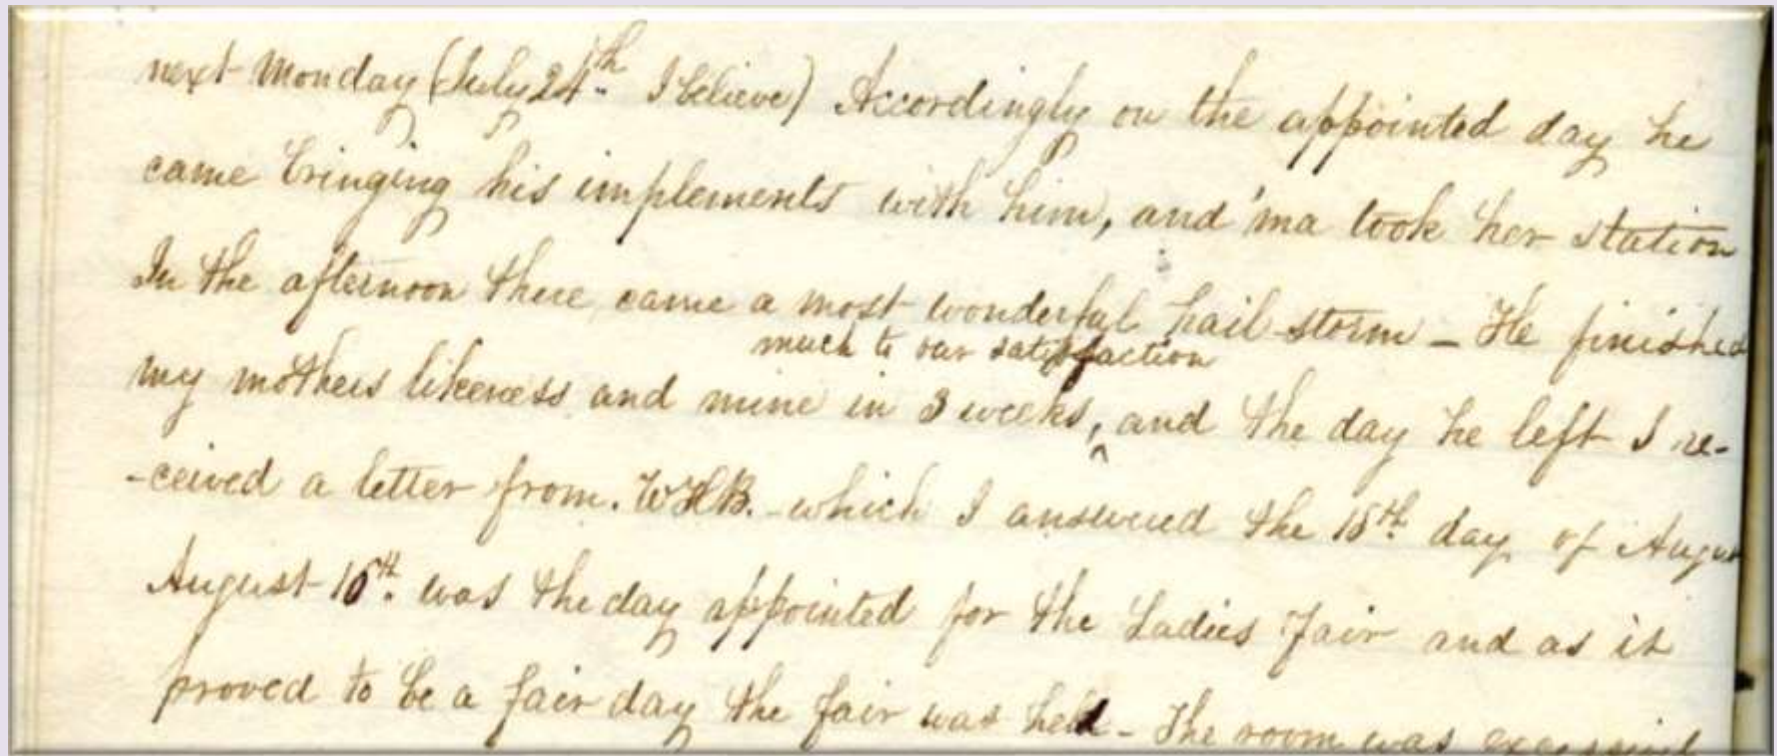 next Monday (July 24th I believe) Accordingly on the appointed day he
came bringing his implements with him, and 'ma took her station
In the afternoon there came a most wonderful hail storm – He finished
much to our satisfaction
my mothers likeness and mine in 3 weeks, ^ and the day he left I re-
-ceived a letter from. WHB. - which I answered the 15th. day of Augus
August 16th. was the day appointed for the Ladies Fair and as it
proved to be a fair day the fair was held – The room was